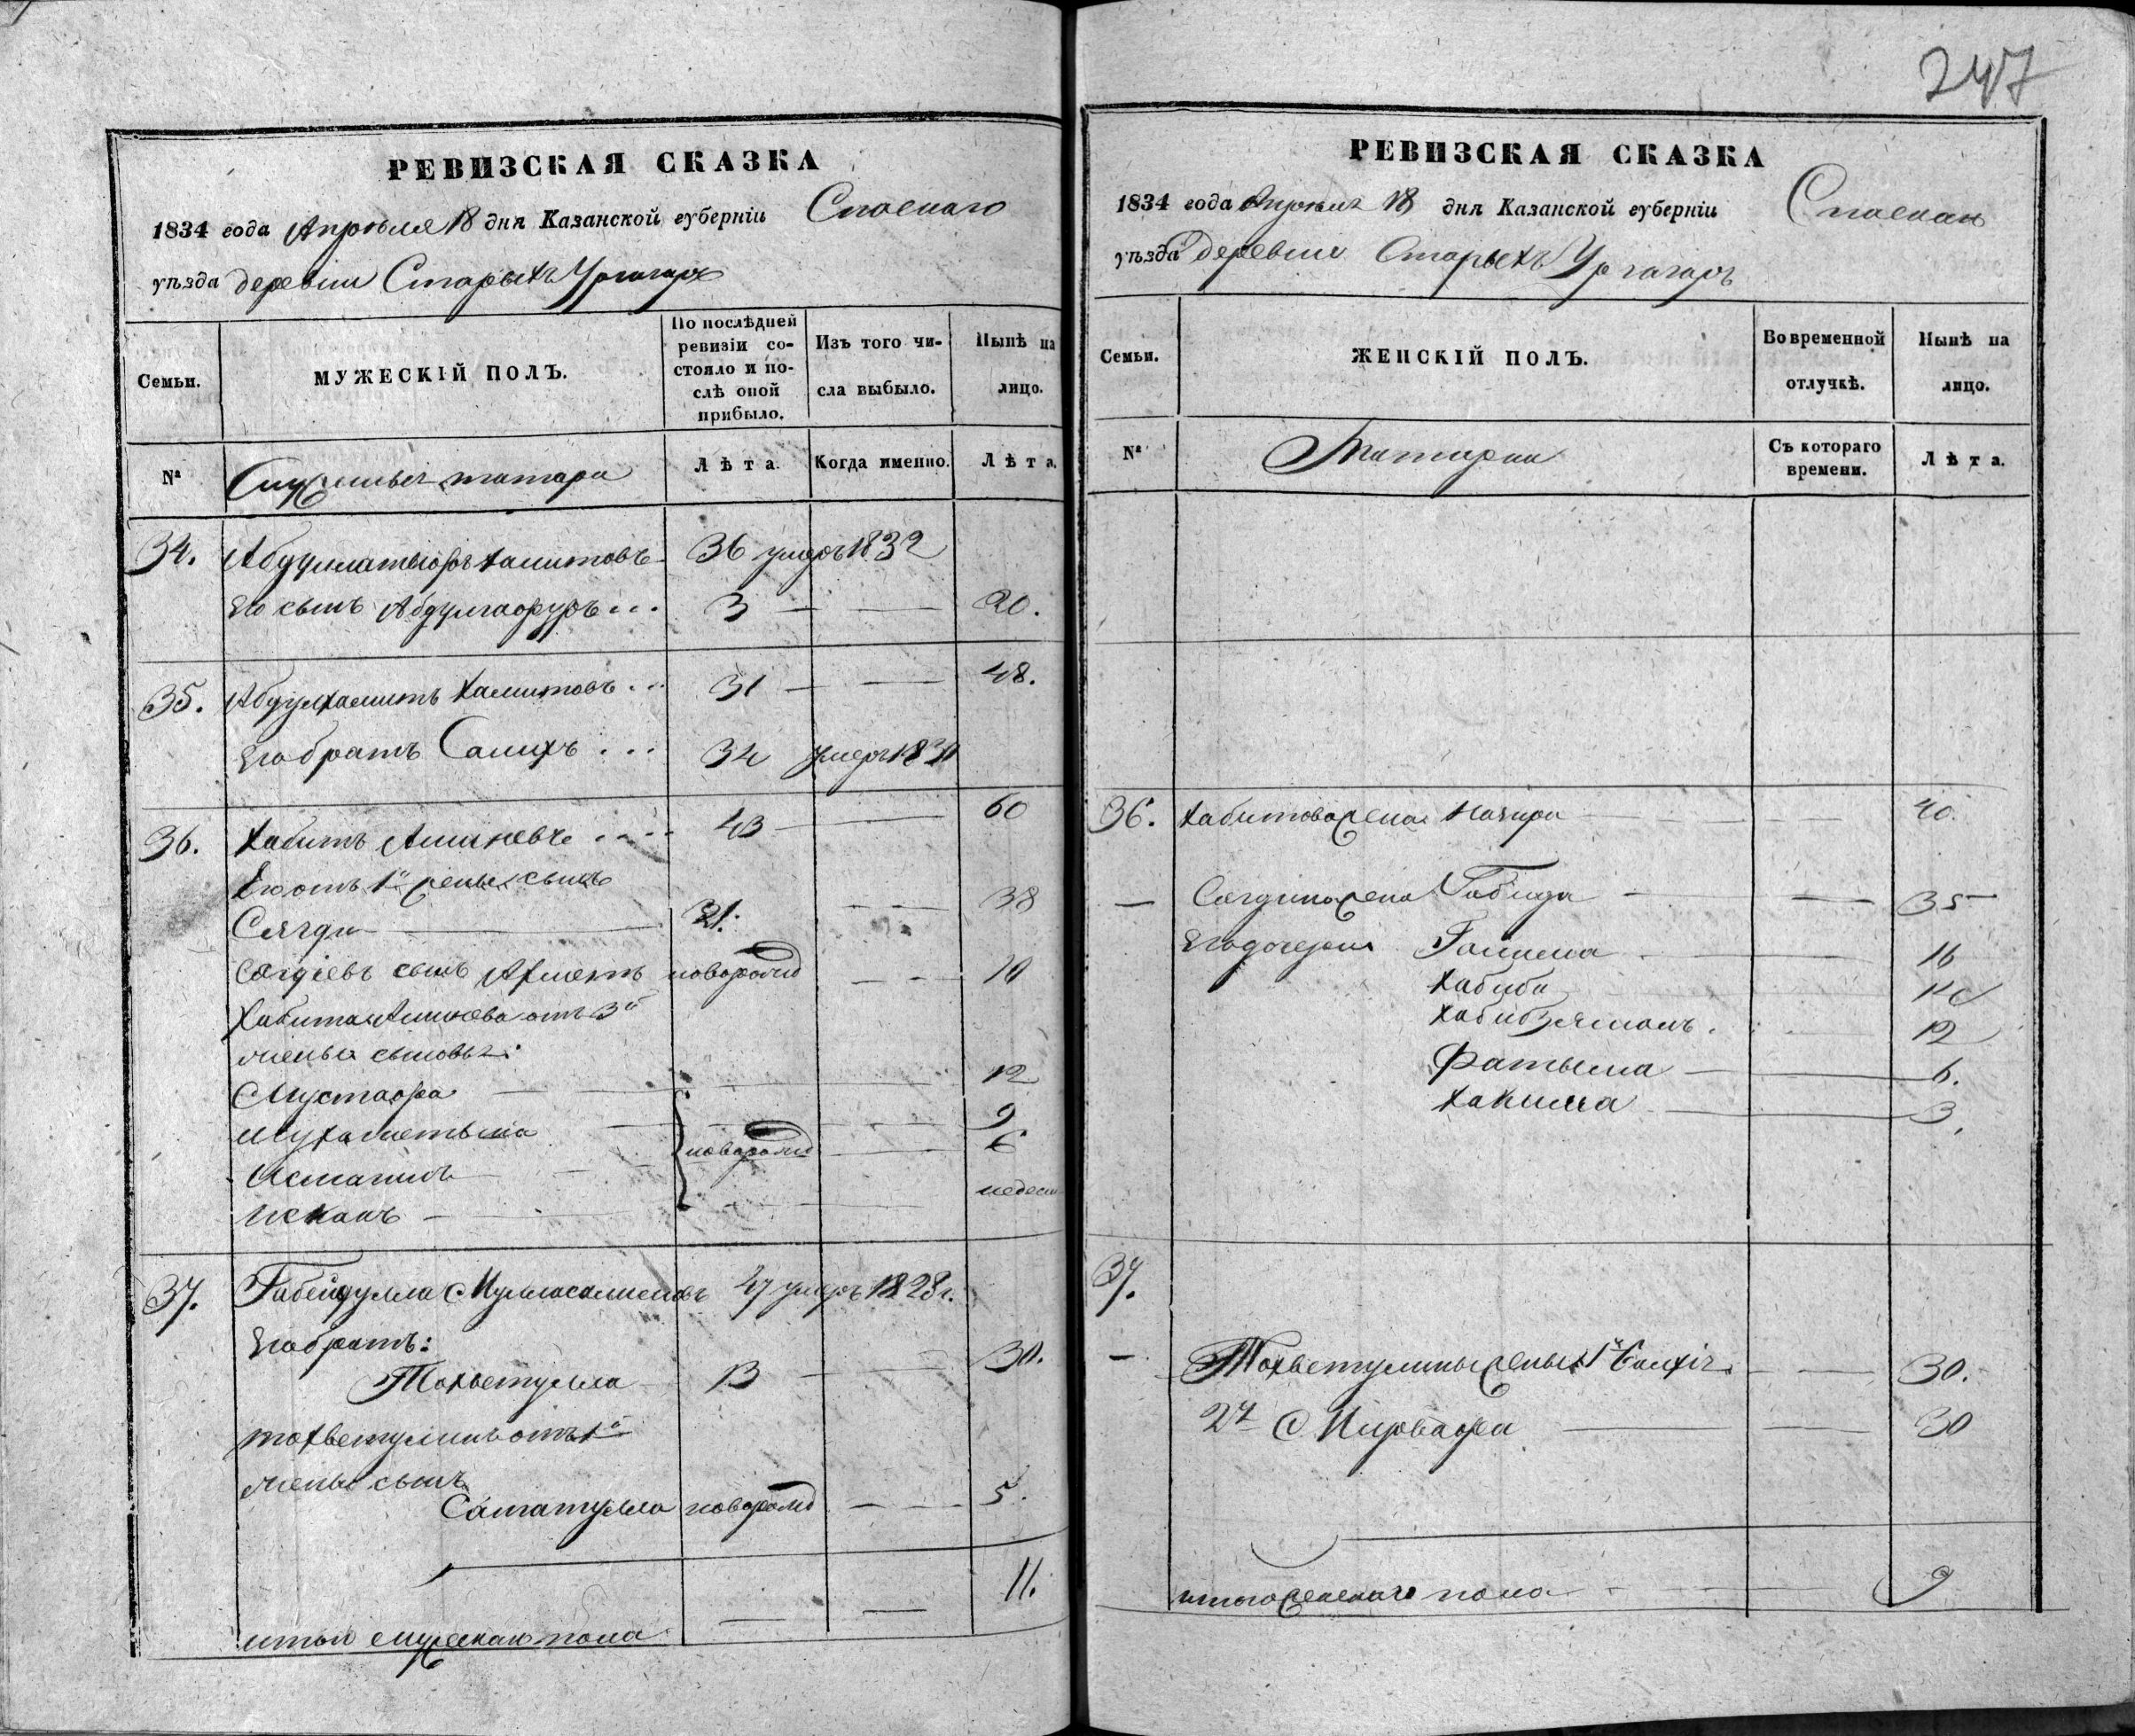 247
РЕВИЗСКАЯ СКАЗКА
1834 года Апреля 18 дня Казанской губерніи Спаскаго
уѣзда деревни Старыхъ Ургагаръ
Семьи.
МУЖЕСКІЙ ПОЛЪ.
По послѣдней ревизіи состояло и послѣ оной прибыло.
Изъ того числа выбыло.
Нынѣ на лицо.
№
Служилыя татара
Лѣта.
Когда именно.
Лѣта.
34. Абдуллатыфъ Хамитовъ 36 умеръ 1832
Его сынъ Абдулгафуръ... 3 — — 20.
35. Абдулхамитъ Хамитовъ... 31 — — 48.
Его братъ Салихъ... 34 умеръ 1831
36. Хабитъ Аминевъ.... 43 — — 60
Его отъ 1й жены сынъ
Сягди — 21. — — 38
Сягдіевъ сынъ Ахметъ новорожд — — 10
Хабита Аминева отъ 3й
жены сыновья:
Мустафа — — 12
Мухаметьша — — 9
Исмагилъ — новорожд — 6
Исхакъ — — недели
37. Габейдулла Мулюсалиевъ 47 умеръ 1828 г.
Его братъ:
Тохветулла 13 — — 30.
тохветуллинъ отъ 1й
жены сынъ
Саматулла новорожд — — 5.
итого мужескаго пола — — 11.
РЕВИЗСКАЯ СКАЗКА
1834 года Апреля 18 дня Казанской губерніи Спаскаго
уѣзда деревни Старыхъ Ургагаръ
Семьи.
ЖЕНСКІЙ ПОЛЪ.
Во временной отлучкѣ.
Нынѣ на лицо.
№
Татарки
Съ котораго времени.
Лѣта.
36. Хабитова жена Назира — — 40.
— Сягдина жена Габида — — 35
Его дочери Галима — 16
Хабиба 14
Хабибзямалъ. 12
Фатыма — 6.
Хакима — 3.
37.
— Тохветуллины жены 1я Салхія — — 30.
2я Мирвафа — — 30
итого женскаго пола — — 9